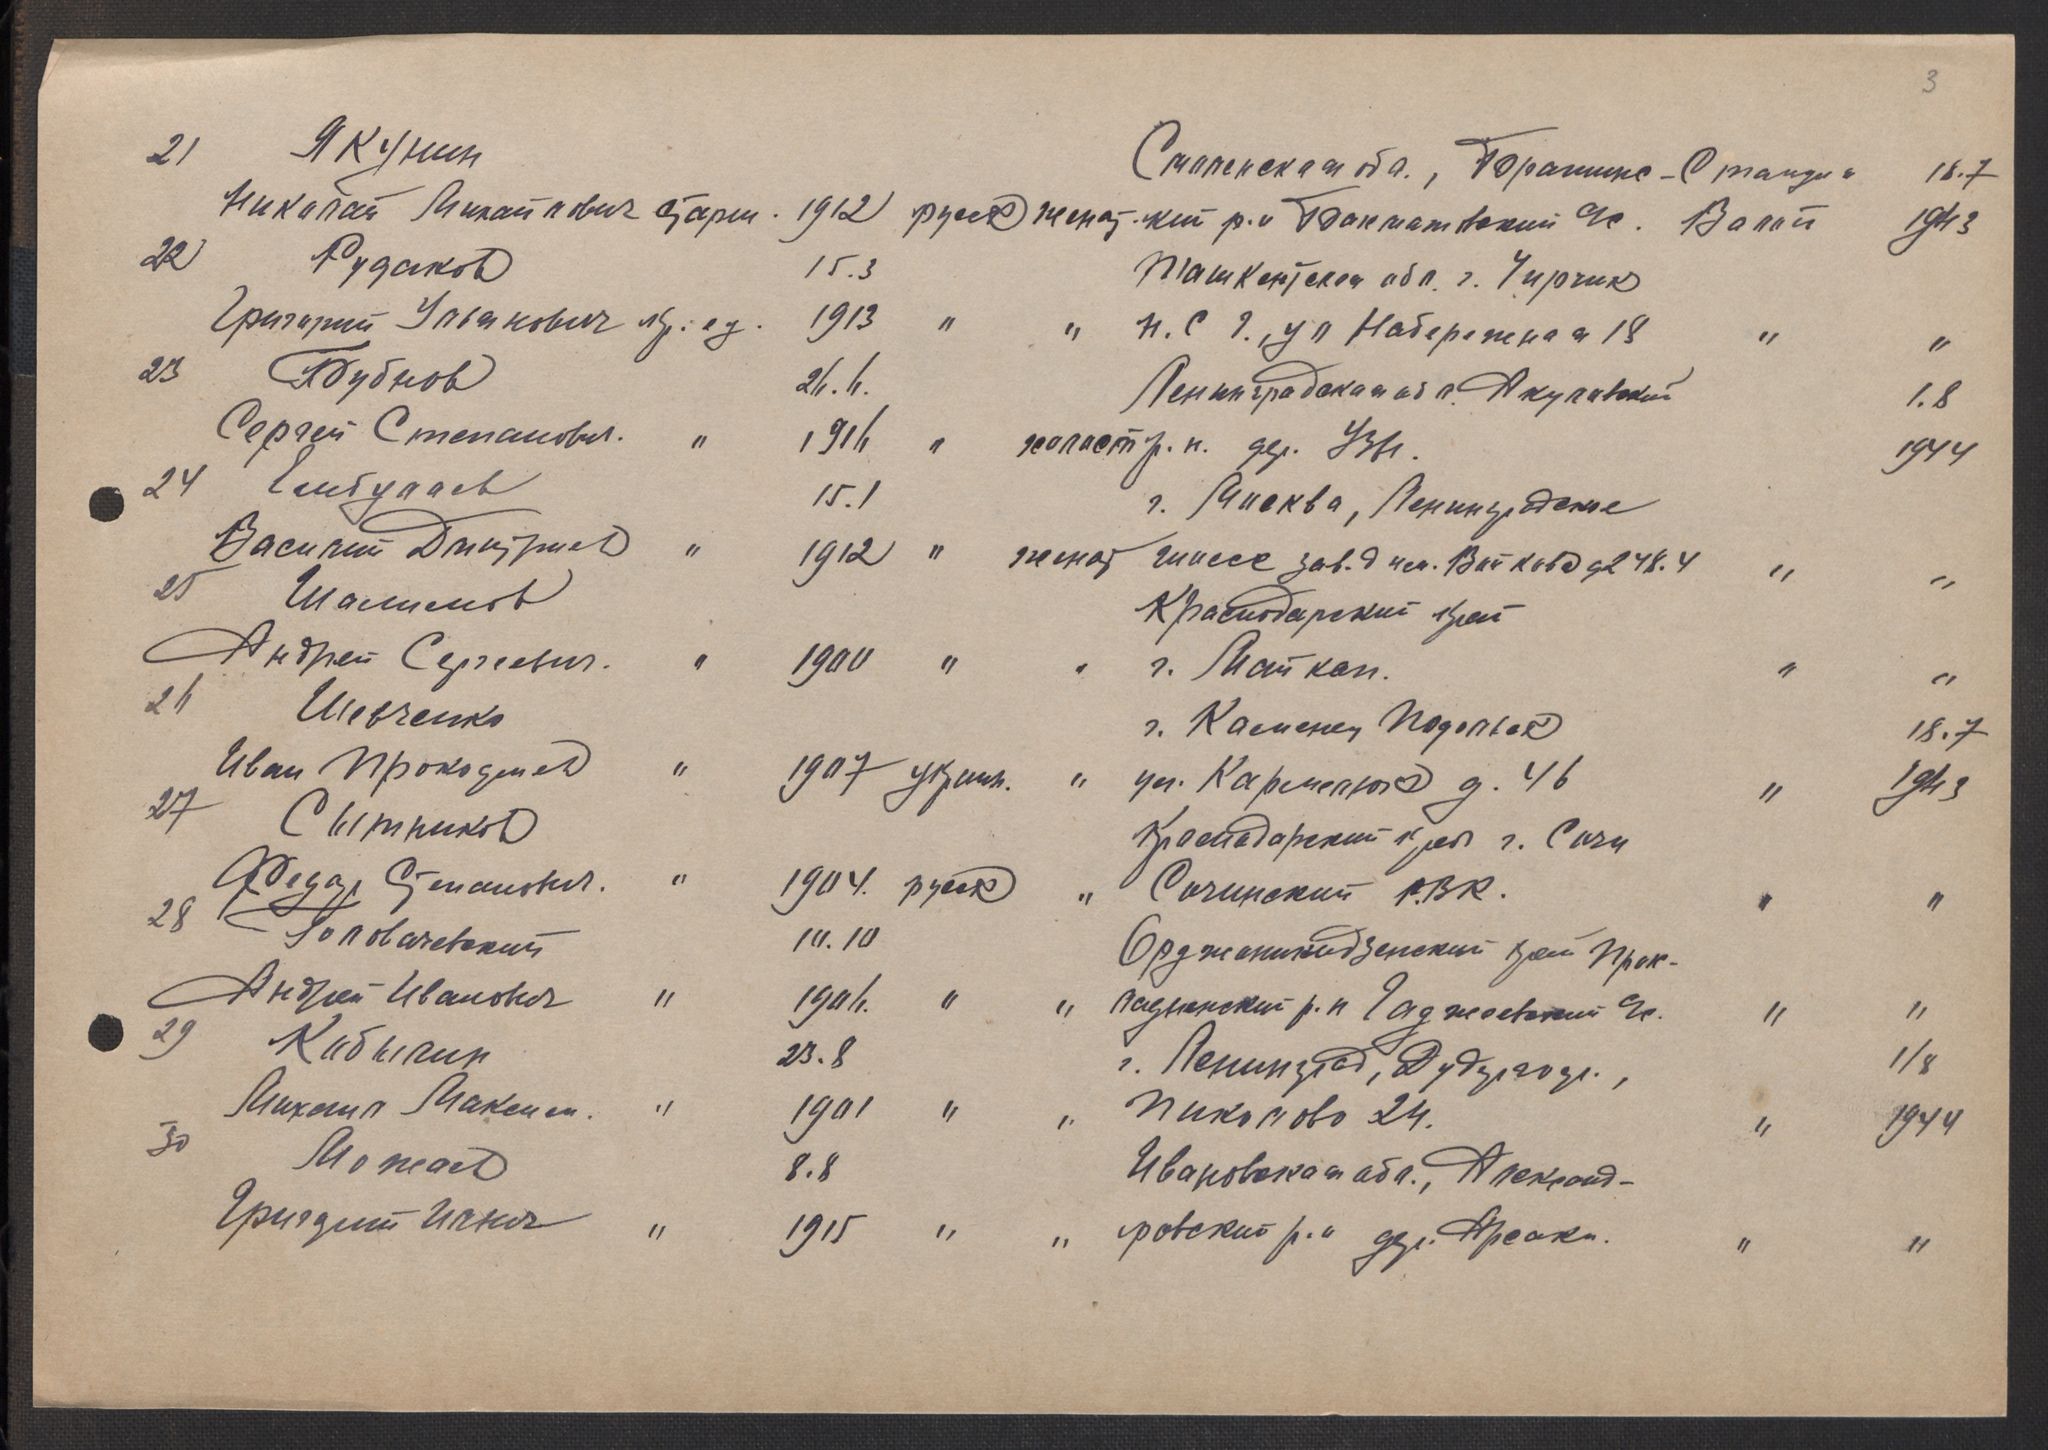 3
21 Якунин Смоленская обл., Станция 18.7
Николай Михайлович старш. 1912 русск женат. р.н Ус. Валай 1943
22 Рудаков 15.3 Ташкентская обл. г. Чирчик
Григорий Ульянович кр. ед. 1913 " " Н. С г., ул Набережная 18 " "
23 Бубнов 24.4. Ленинградская обл. 1.8
Сергей Степанович. " 1914 " холост р.н. дер. 1944
24 15.1 г. Москва, Ленинградское
Василий Дмитриев " 1912 " женат шоссе зав.д им. Войкова д 2 48.4 " "
25 Шалимов Краснодарский край
Андрей Сергеевич. " 1900 " " г. Майкоп. " "
26 Шевченко г. Каменец Подольск 18.7
Иван Прокофьев " 1907 украин. " ул. Кармелюка д. 46 " 1943
27 Сытников Краснодарский край г. Сочи
Федор Степанович. " 1904. русск " Сочинский Р.ВК. " "
28 Головачевский 10.10 Орджоникидзенский край Прох-
Андрей Иванович " 1904. " " ладненский р.н Ус. " "
29 Кобылин 23.8 г. Ленинград, 1/8
Михаил Максим. " 1901 " " 24. " 1944
30 Можаев 8.8 Ивановская обл., Александ-
Григорий Ильич " 1915 " " ровский р.н дер. Арсаки. " "